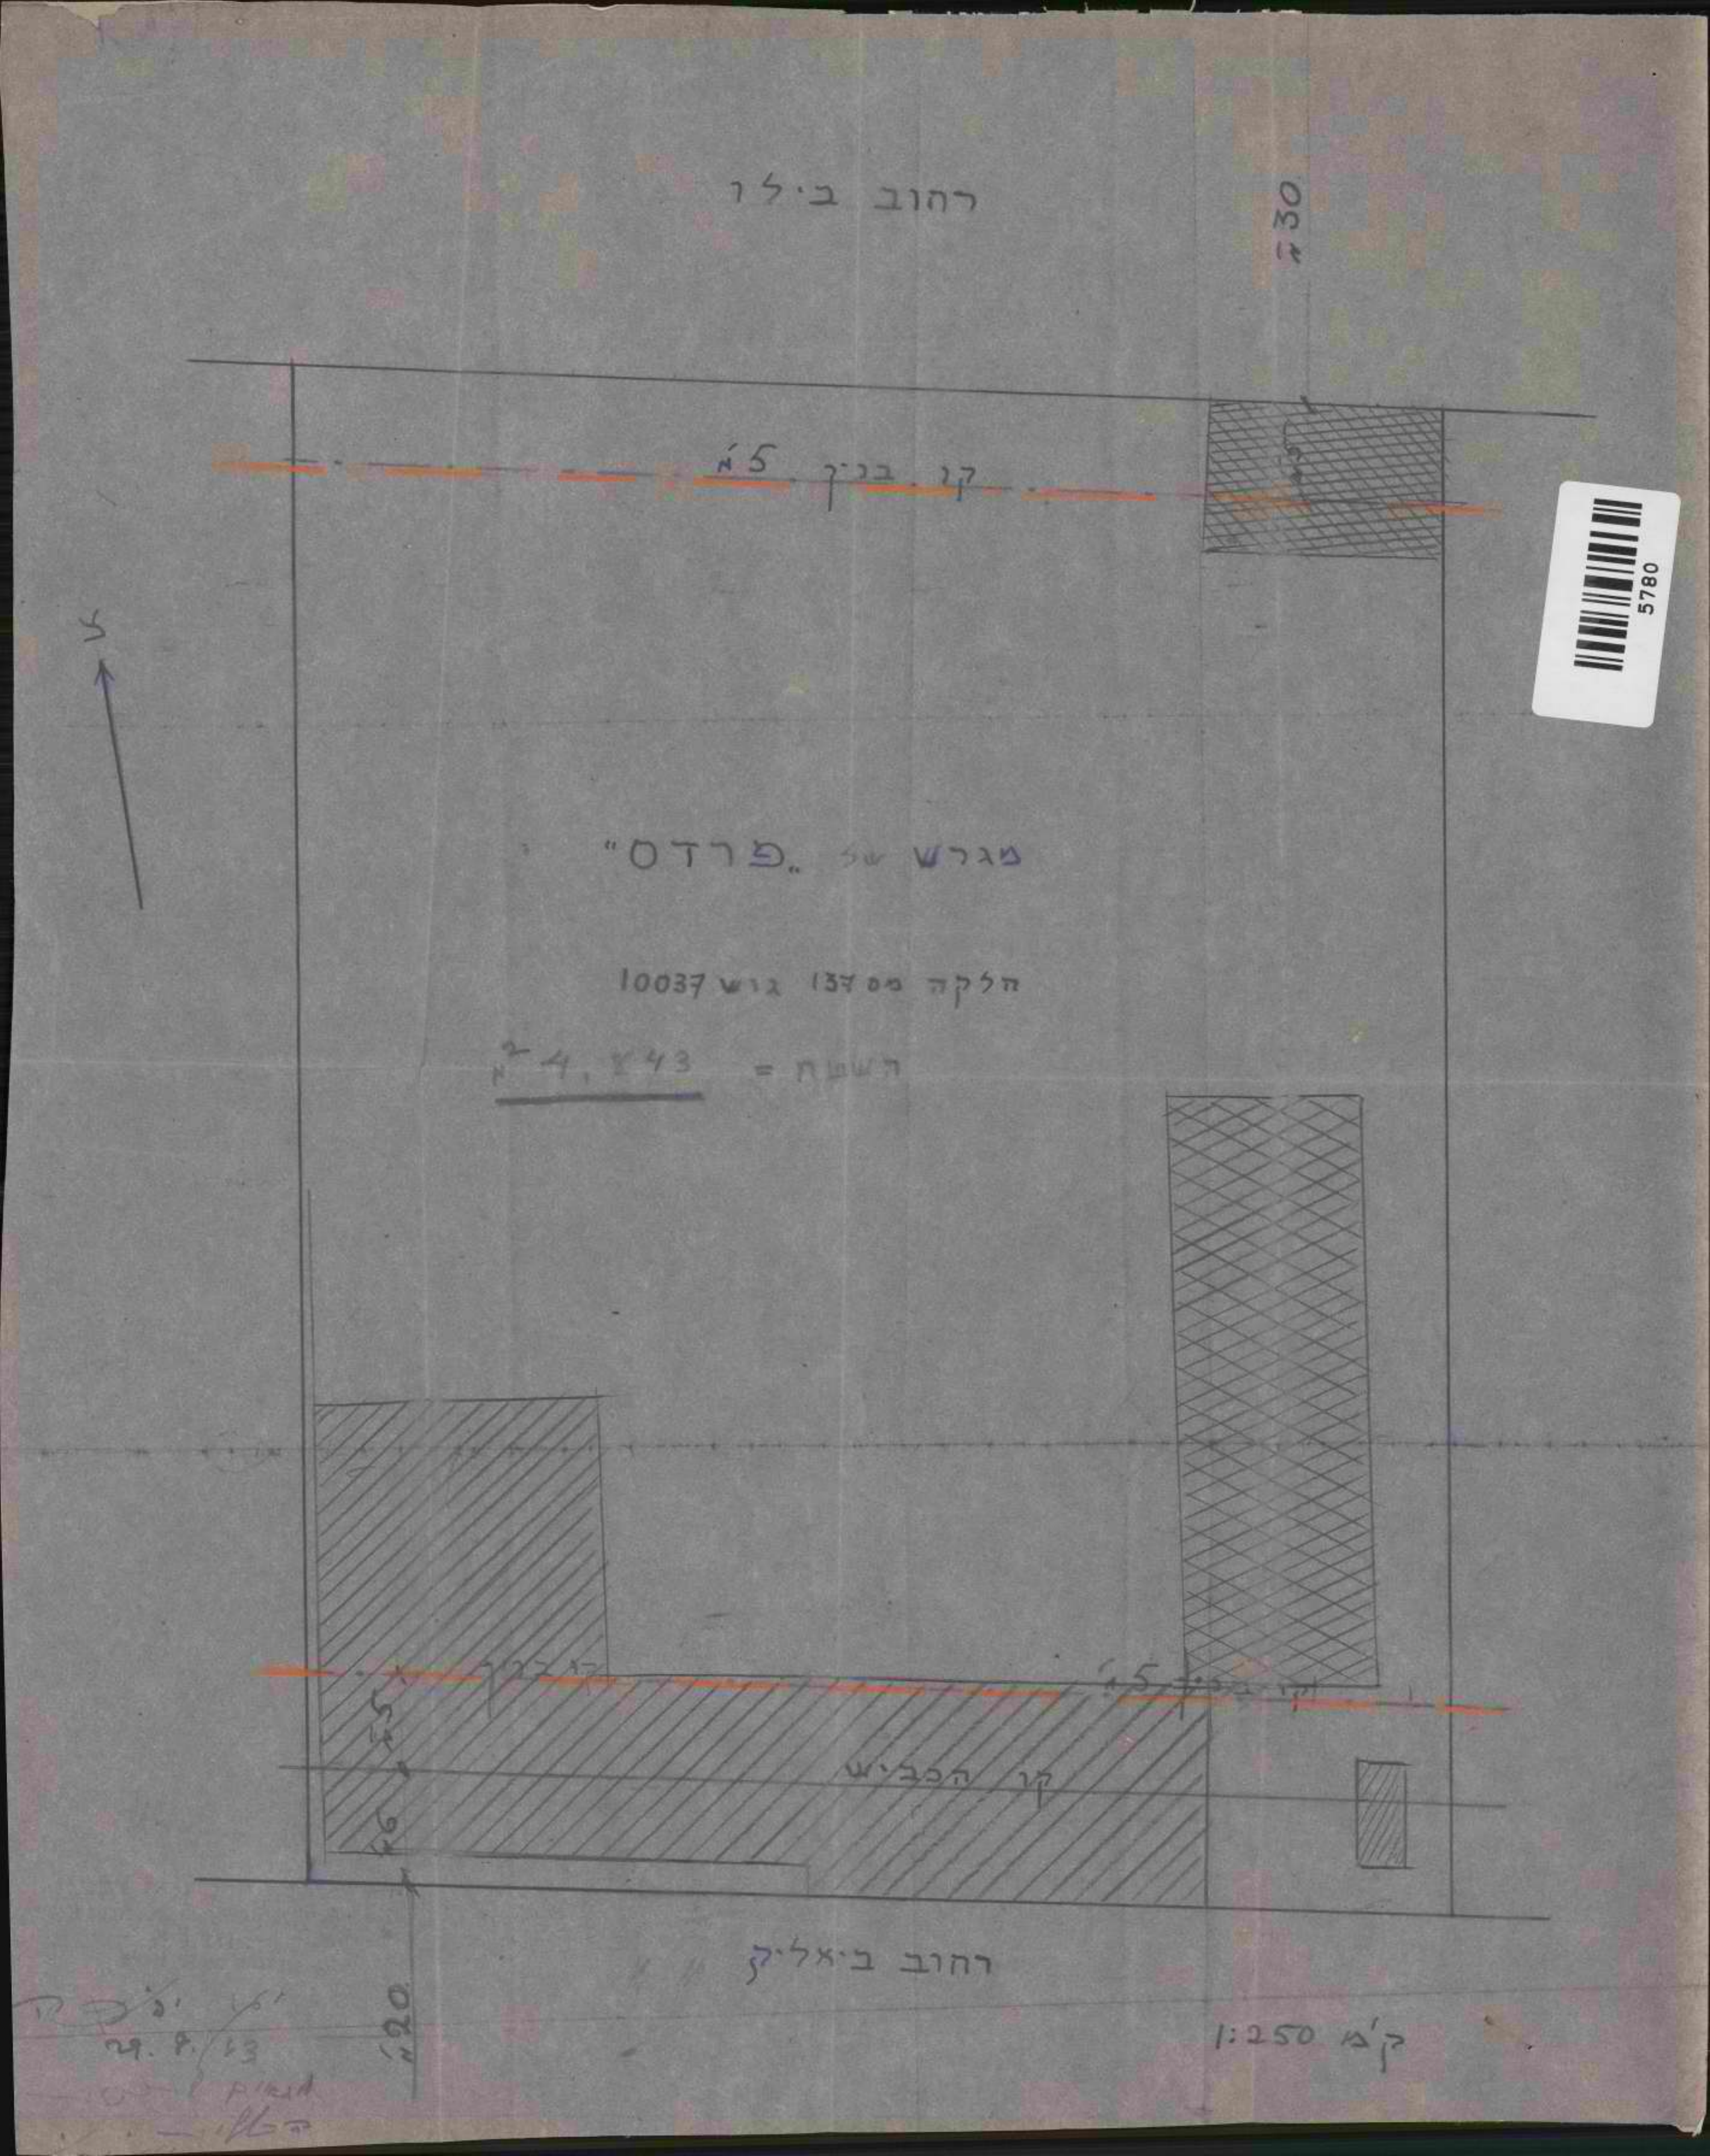 רחוב בילו
30 מ'
קו בנין 5 מ'
5780
צ
מגרש של "פרדס"
חלקה מס 137 גוש 10037
השטח = 4,843 מ²
קו בנין
5 מ'
קו בנין
5 מ'
קו הכביש
6 מ'
רחוב ביאליק
20 מ'
ק'מ 1:250